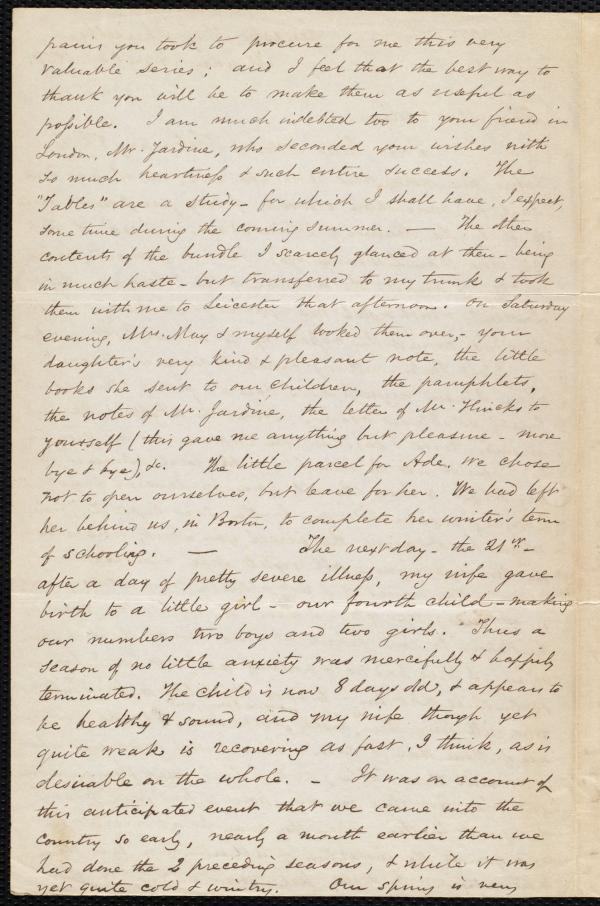 pains you took to procure for me this very
valuable series; and I feel that the best way to
thank you will be to make them as useful as
possible. I am much indebted too to your friend in
London, Mr. Jardine, who seconded your wishes with
so much heartiness & such entire success. The
"Tables" are a study - for which I shall have, I expect,
some time during the coming summer. — The other
contents of the bundle I scarcely glanced at then - being
in much haste - but transferred to my trunk & took
them with me to Leicester that afternoon. On Saturday
evening, Mrs. May & myself looked them over, - your
daughter's very kind & pleasant note, the little
books she sent to our children, the pamphlets,
the notes of Mr. Jardine, the letter of Mr. Hincks to
yourself (this gave me anything but pleasure - more
bye & bye), &c. The little parcel for Ade. we chose
not to open ourselves, but leave for her. We had left
her behind us, in Boston, to complete her winter's term
of schooling. — The next day - the 21st -
after a day of pretty severe illness, my wife gave
birth to a little girl - our fourth child - making
our numbers two boys and two girls. Thus a
season of no little anxiety was mercifully & happily
terminated. The child is now 8 days old, & appears to
be healthy & sound, and my wife though yet
quite weak is recovering as fast, I think, as is
desirable on the whole. - It was on account of
this anticipated event that we came into the
country so early, nearly a month earlier than we
had done the 2 preceding seasons, & while it was
yet quite cold & wintry. Our spring is very